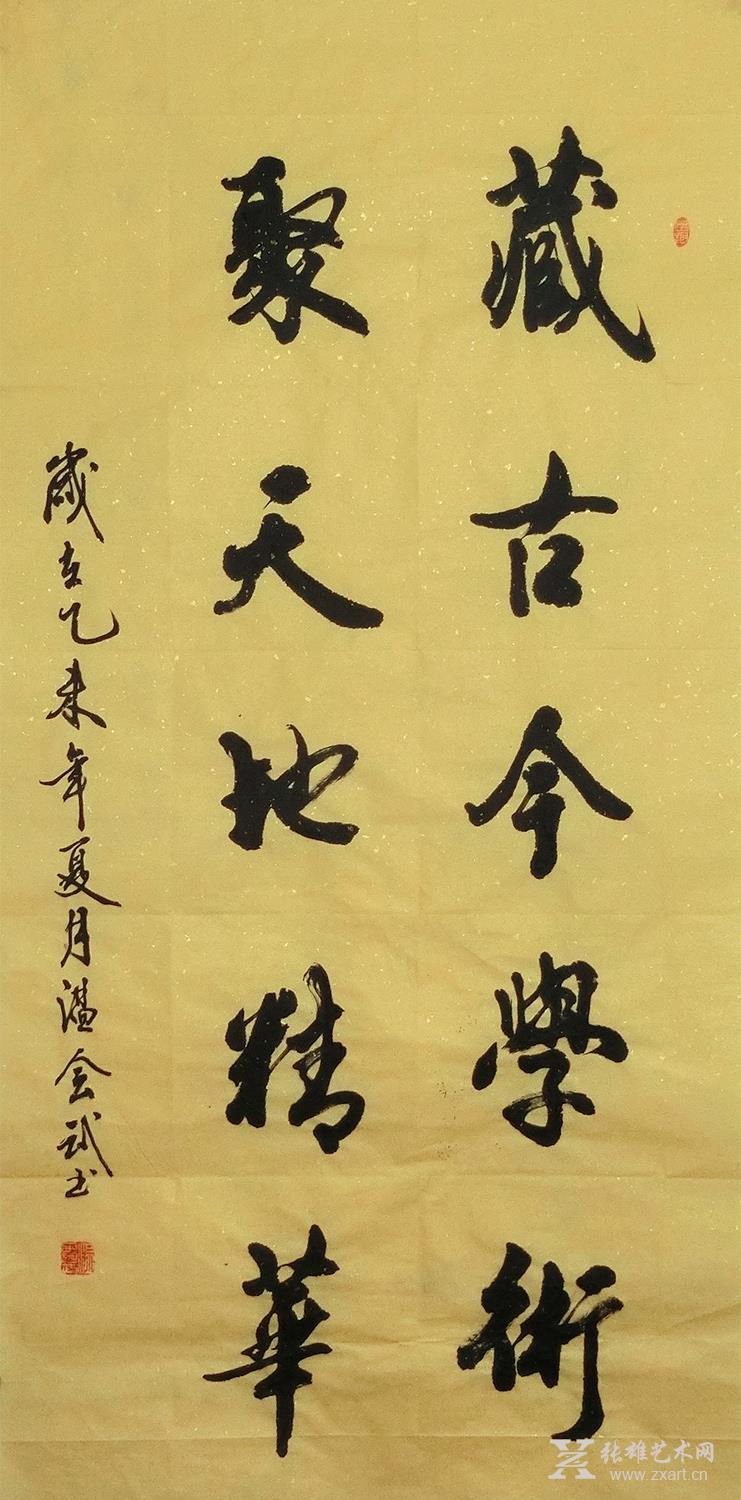 藏古今學術
聚天地精華
歲在乙未年夏月温会斌书
张雄艺术网
www.zxart.cn